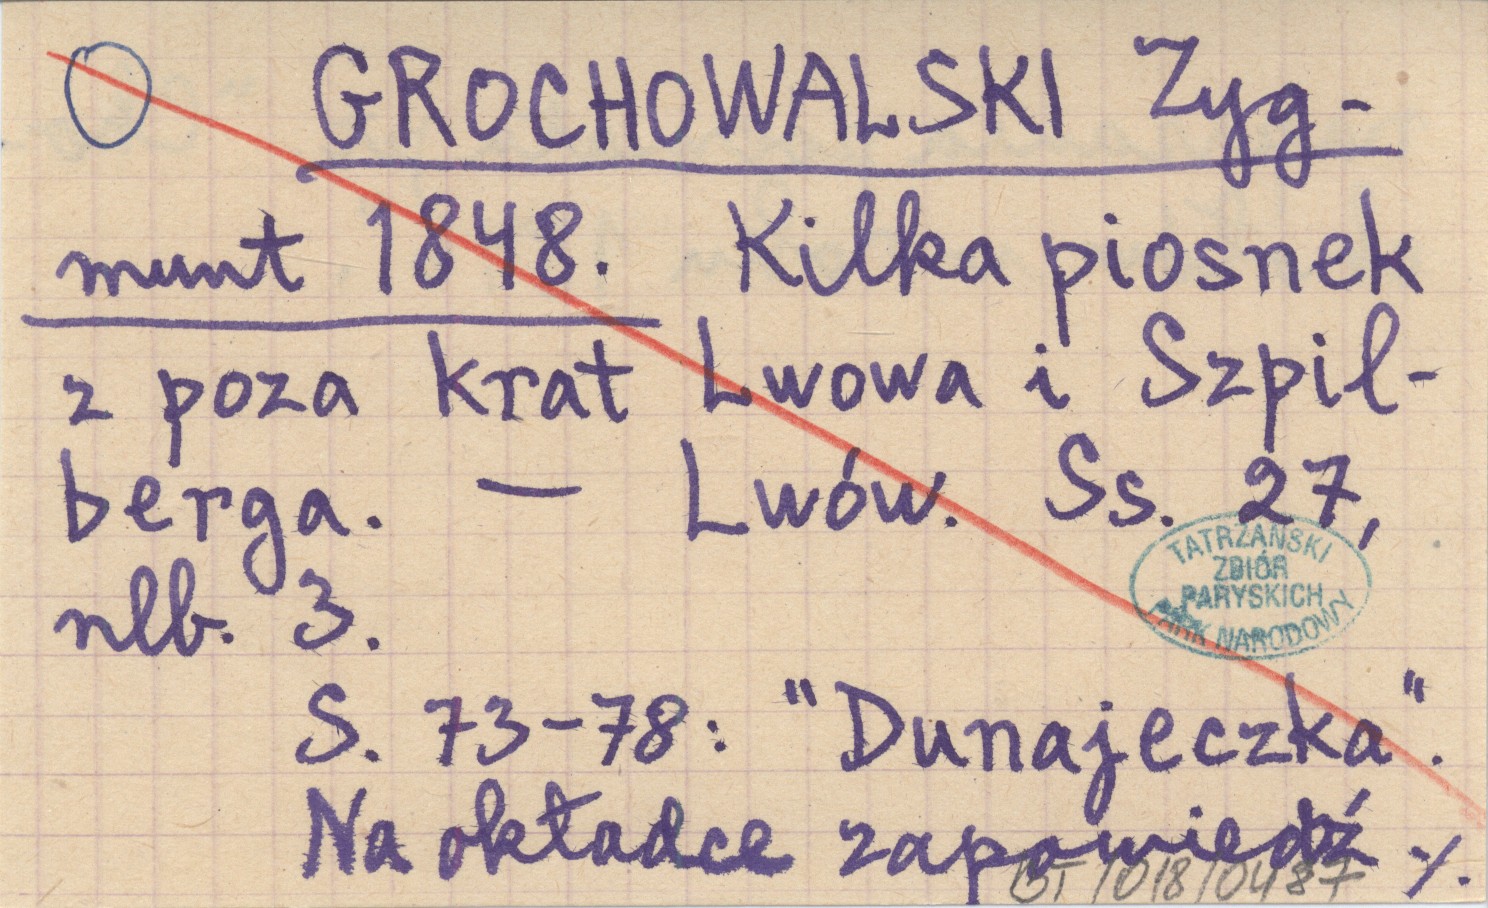 GROCHOWALSKI Zyg-
munt 1848. Kilka piosnek
z poza krat Lwowa i Szpil-
berga. — Lwów. Ss. 27,
nlb. 3.
TATRZAŃSKI
ZBIÓR
PARYSKICH
PARK NARODOWY
S. 73-78: "Dunajeczka".
Na okładce zapowiedź ./.
BT/018/0487